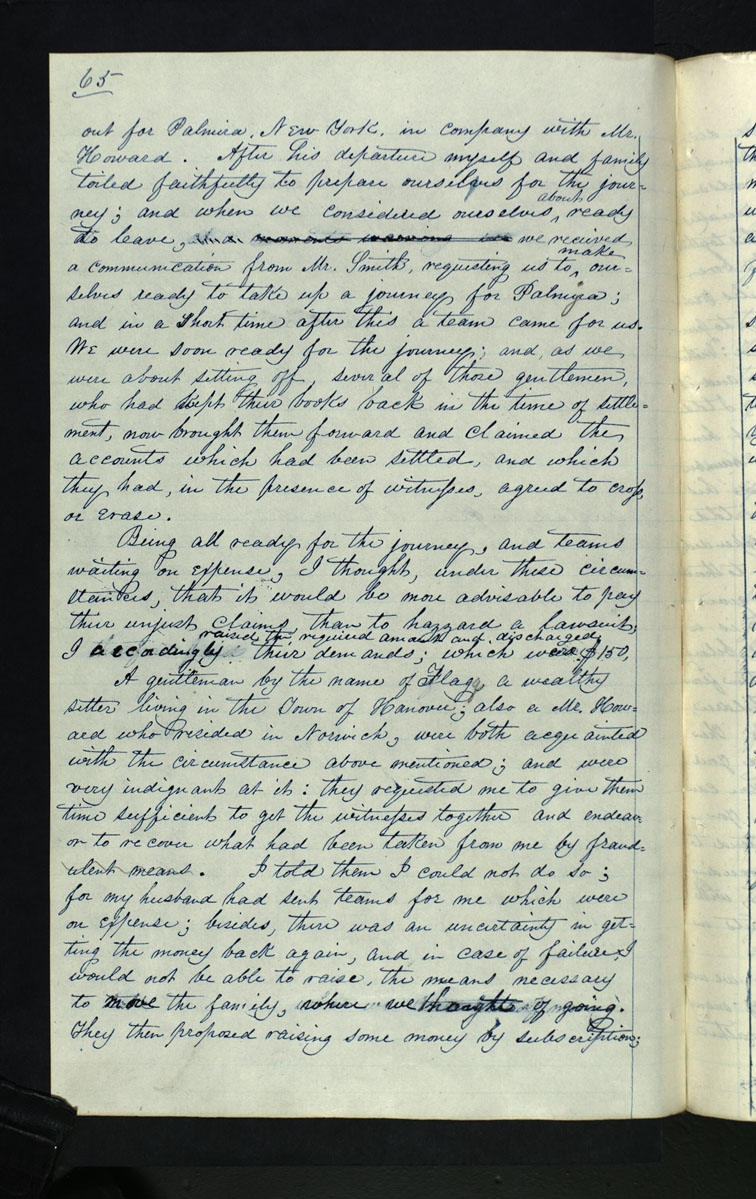 65
out for Palmira, New York, in company with Mr.
Howard. After his departure myself and family
toiled faithfully to prepare ourselves for the jour=
about
ney; and when we considered ourselves, ready
to leave, we recieved
make
a communication from Mr. Smith, requesting us to, our=
selves ready to take up a journey for Palmyra;
and in a short time after this a team came for us.
We were soon ready for the journey; and, as we
were about setting off, several of those gentlemen,
who had kept their books back in the time of settle=
ment, now brought them forward and claimed the
accounts which had been settled, and which
they had, in the presence of witnesses, agreed to cross,
or erase.
Being all ready for the journey, and teams
waiting on expense, I thought, under these circum=
stances, that it would be more advisable to pay
their unjust claims, than to hazzard a lawsuit;
raised the required amount and discharged
I accordingly their demands; which were $150,
A gentleman by the name of Flagg a wealthy
setter living in the Town of Hanover; also a Mr. How=
ard who resided in Norwich, were both acquainted
with the circumstance above mentioned; and were
very indignant at it: they requested me to give them
time sufficient to get the witnesses together and endeav=
or to recover what had been taken from me by fraud=
ulent means. I told them I could not do so;
for my husband had sent teams for me which were
on expense; besides, there was an uncertainty in get=
ting the money back again, and in case of failure I
would not be able to raise, the means necessary
to move the family, where we thought of going.
They then proposed raising some money by subscription;